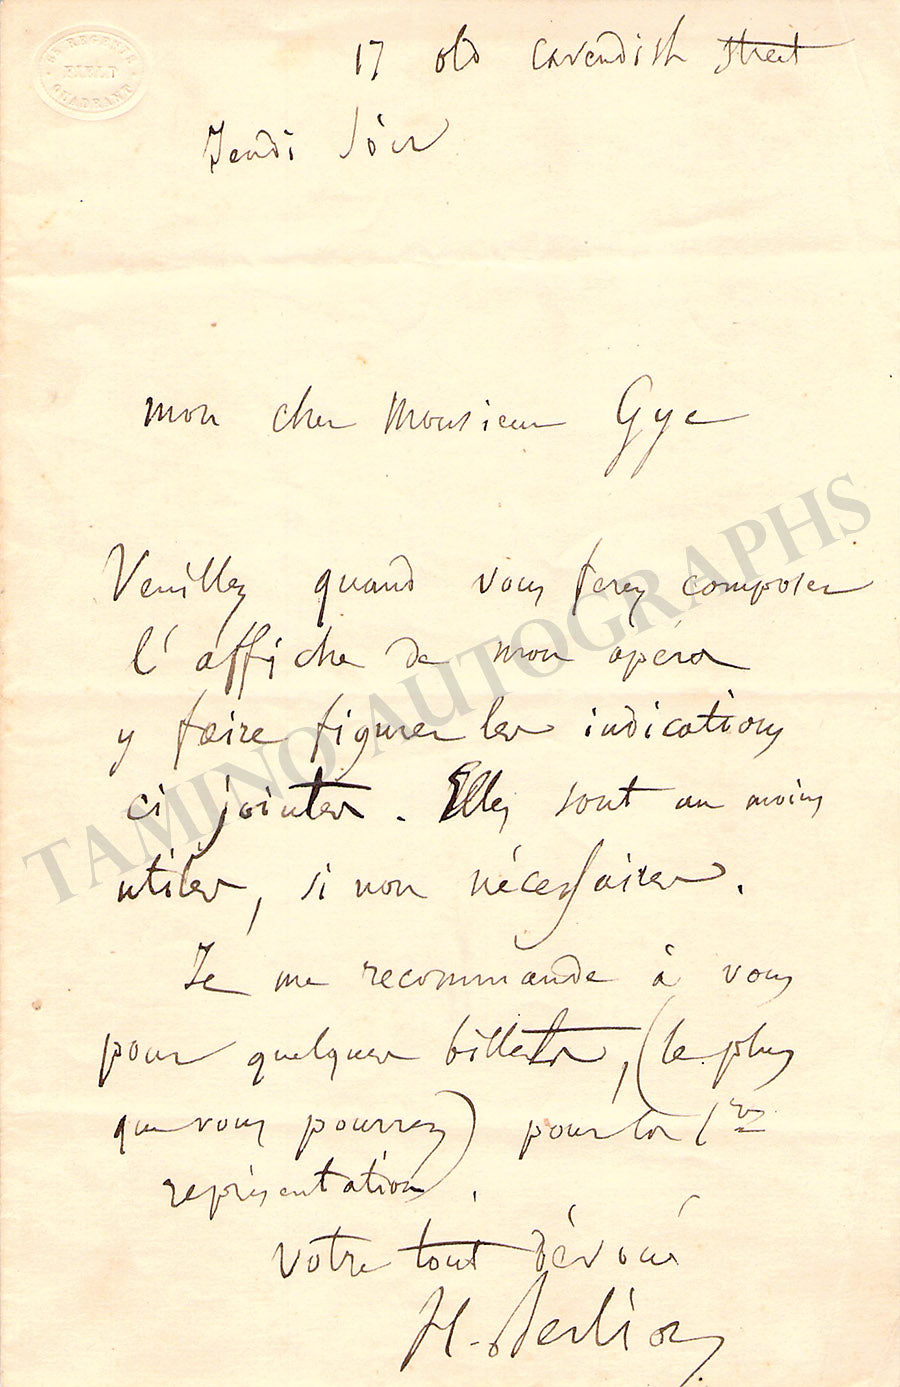 65 REGENTS
FIELD
QUADRANT
17 old Cavendish street
Jeudi soir
mon cher Monsieur Gye
Veuillez quand vous ferez composer
l'affiche de mon opéra
y faire figurer les indications
ci jointes. Elles sont au moins
utiles, si non nécessaires.
Je me recommande à vous
pour quelques billets, (le plus
que vous pourrez) pour la 1re
représentation.
votre tout dévoué
H. Berlioz
TAMINO AUTOGRAPHS